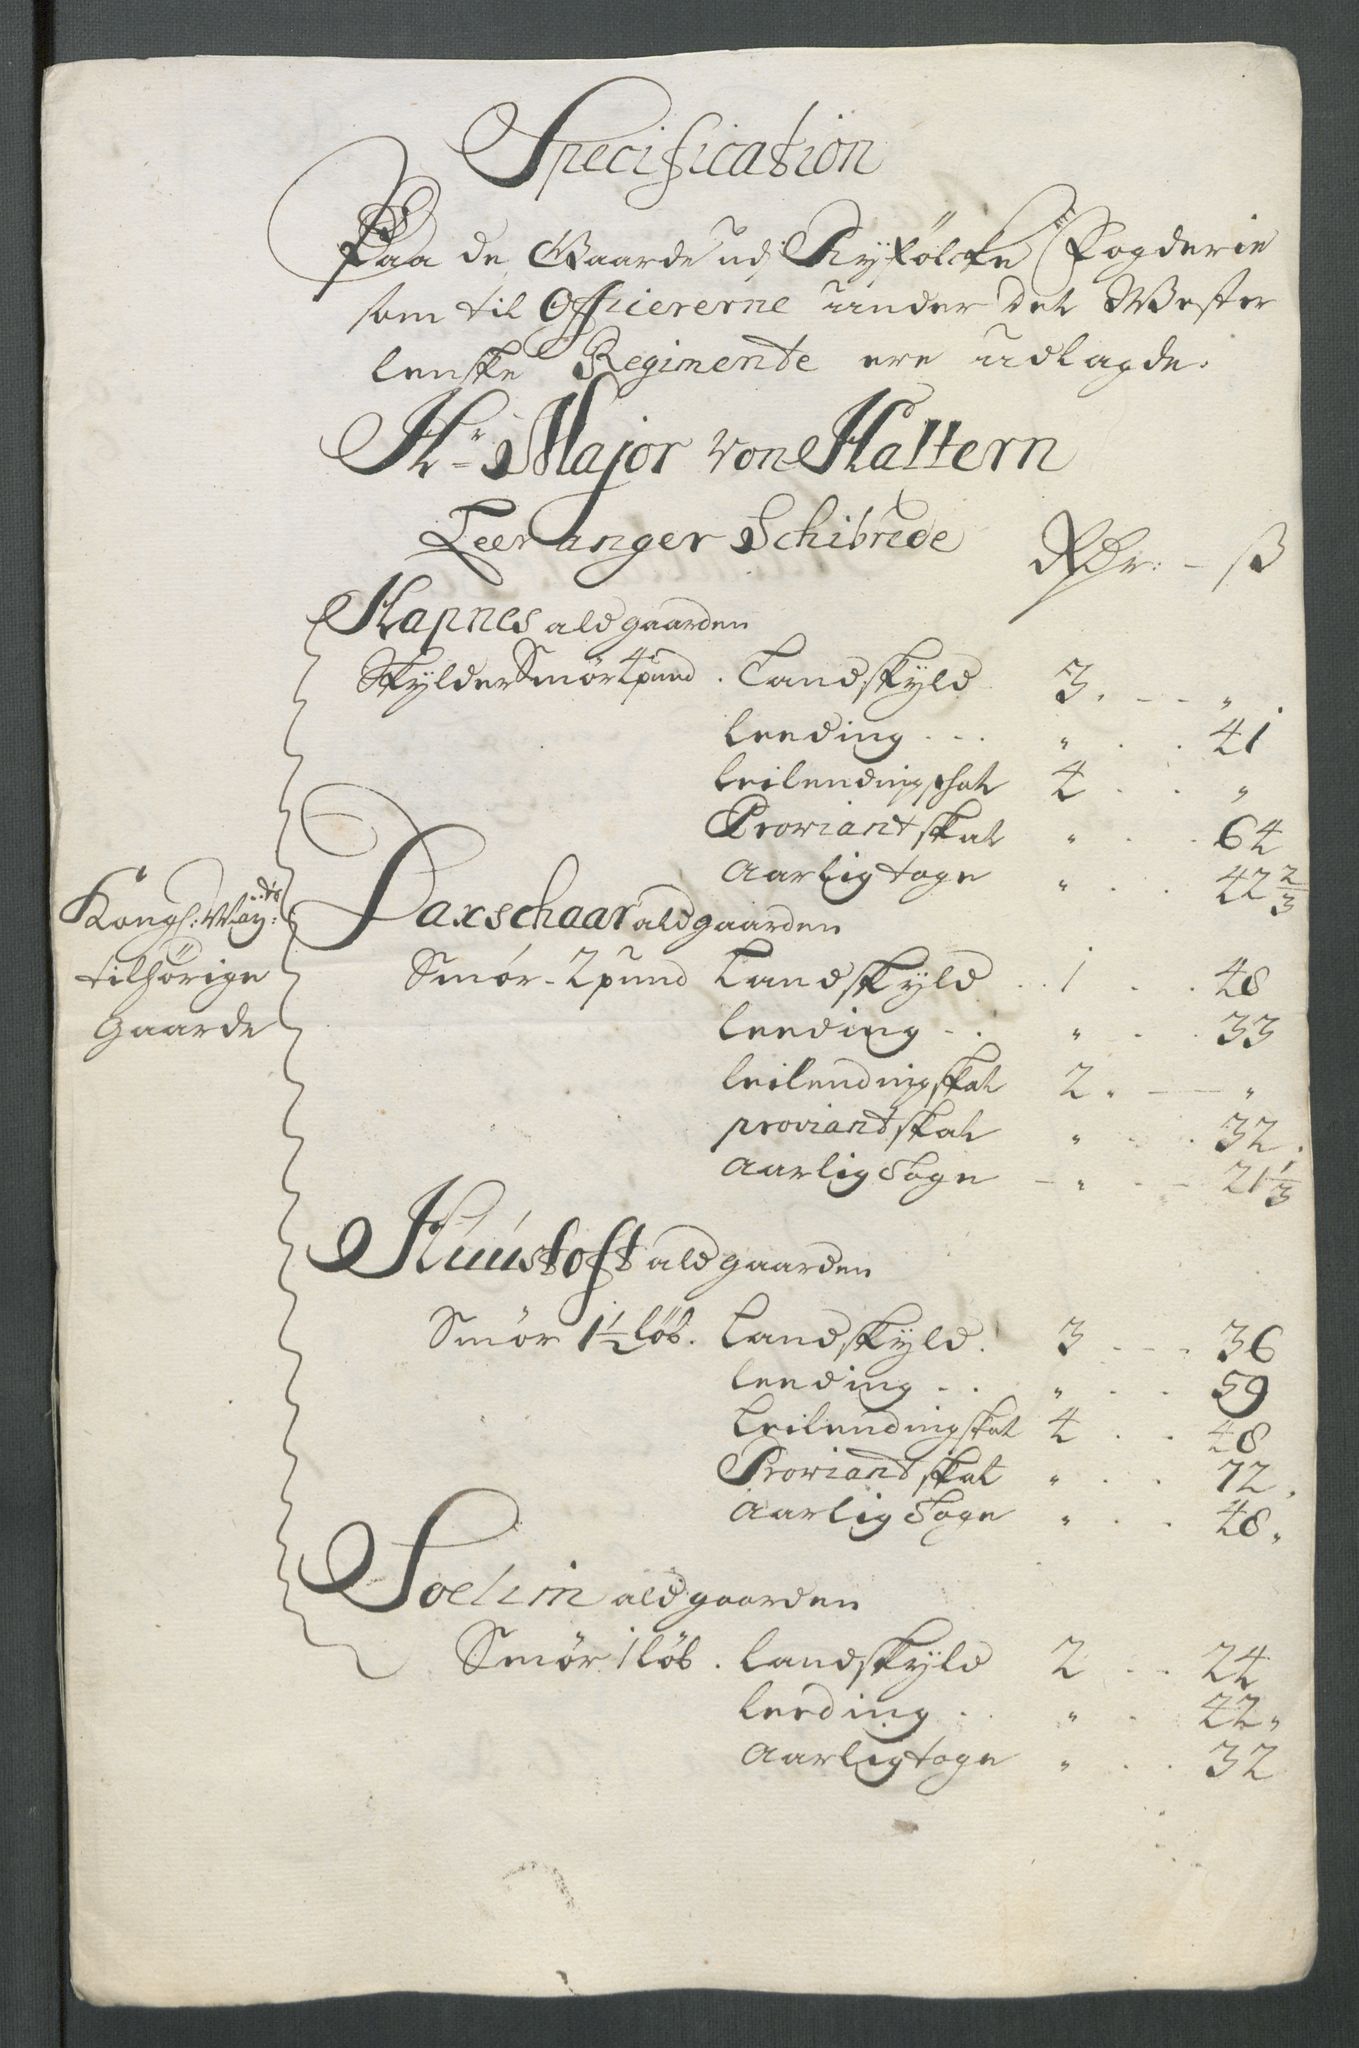 Specification
Paa de Gaarde udj Ryfölcke Fogderie
som til Officiererne under det Wester
lenske Regimente ere udlagde.
Hr Major von Haltern
Leeranger Schibrede Rdr: - ß
Hapnes ald gaarden
Skylder Smør 4 pund . Landskyld 3. - - "
leeding . . . " . . 41
leilendingschat 4 . . "
Proviant skat " . . 64
Aarlig toge " . . 42 2/3
Kongl: May:ts
tilhörige
Gaarde
Laxschaar ald gaarden
Smør - 2 pund Landskyld . . 1 . . 48
leeding - . " . . 33
leilendingskat 2 . - "
proviantskat " . . 32.
Aarlig toge - " - - 21 1/3
Huustoft ald gaarden
Smør 1 1/2 löb. Landskyld . 3 . . . 36
leeding . . " . . 59
Leilendingskat 4 . . 48
Proviandskat " . . 72.
Aarlig toge " . . 48"
Soelim ald gaarden
Smør 1 løb . landskyld 2 . . 24
leeding . . " . 42"
Aarlig toge " . . 32